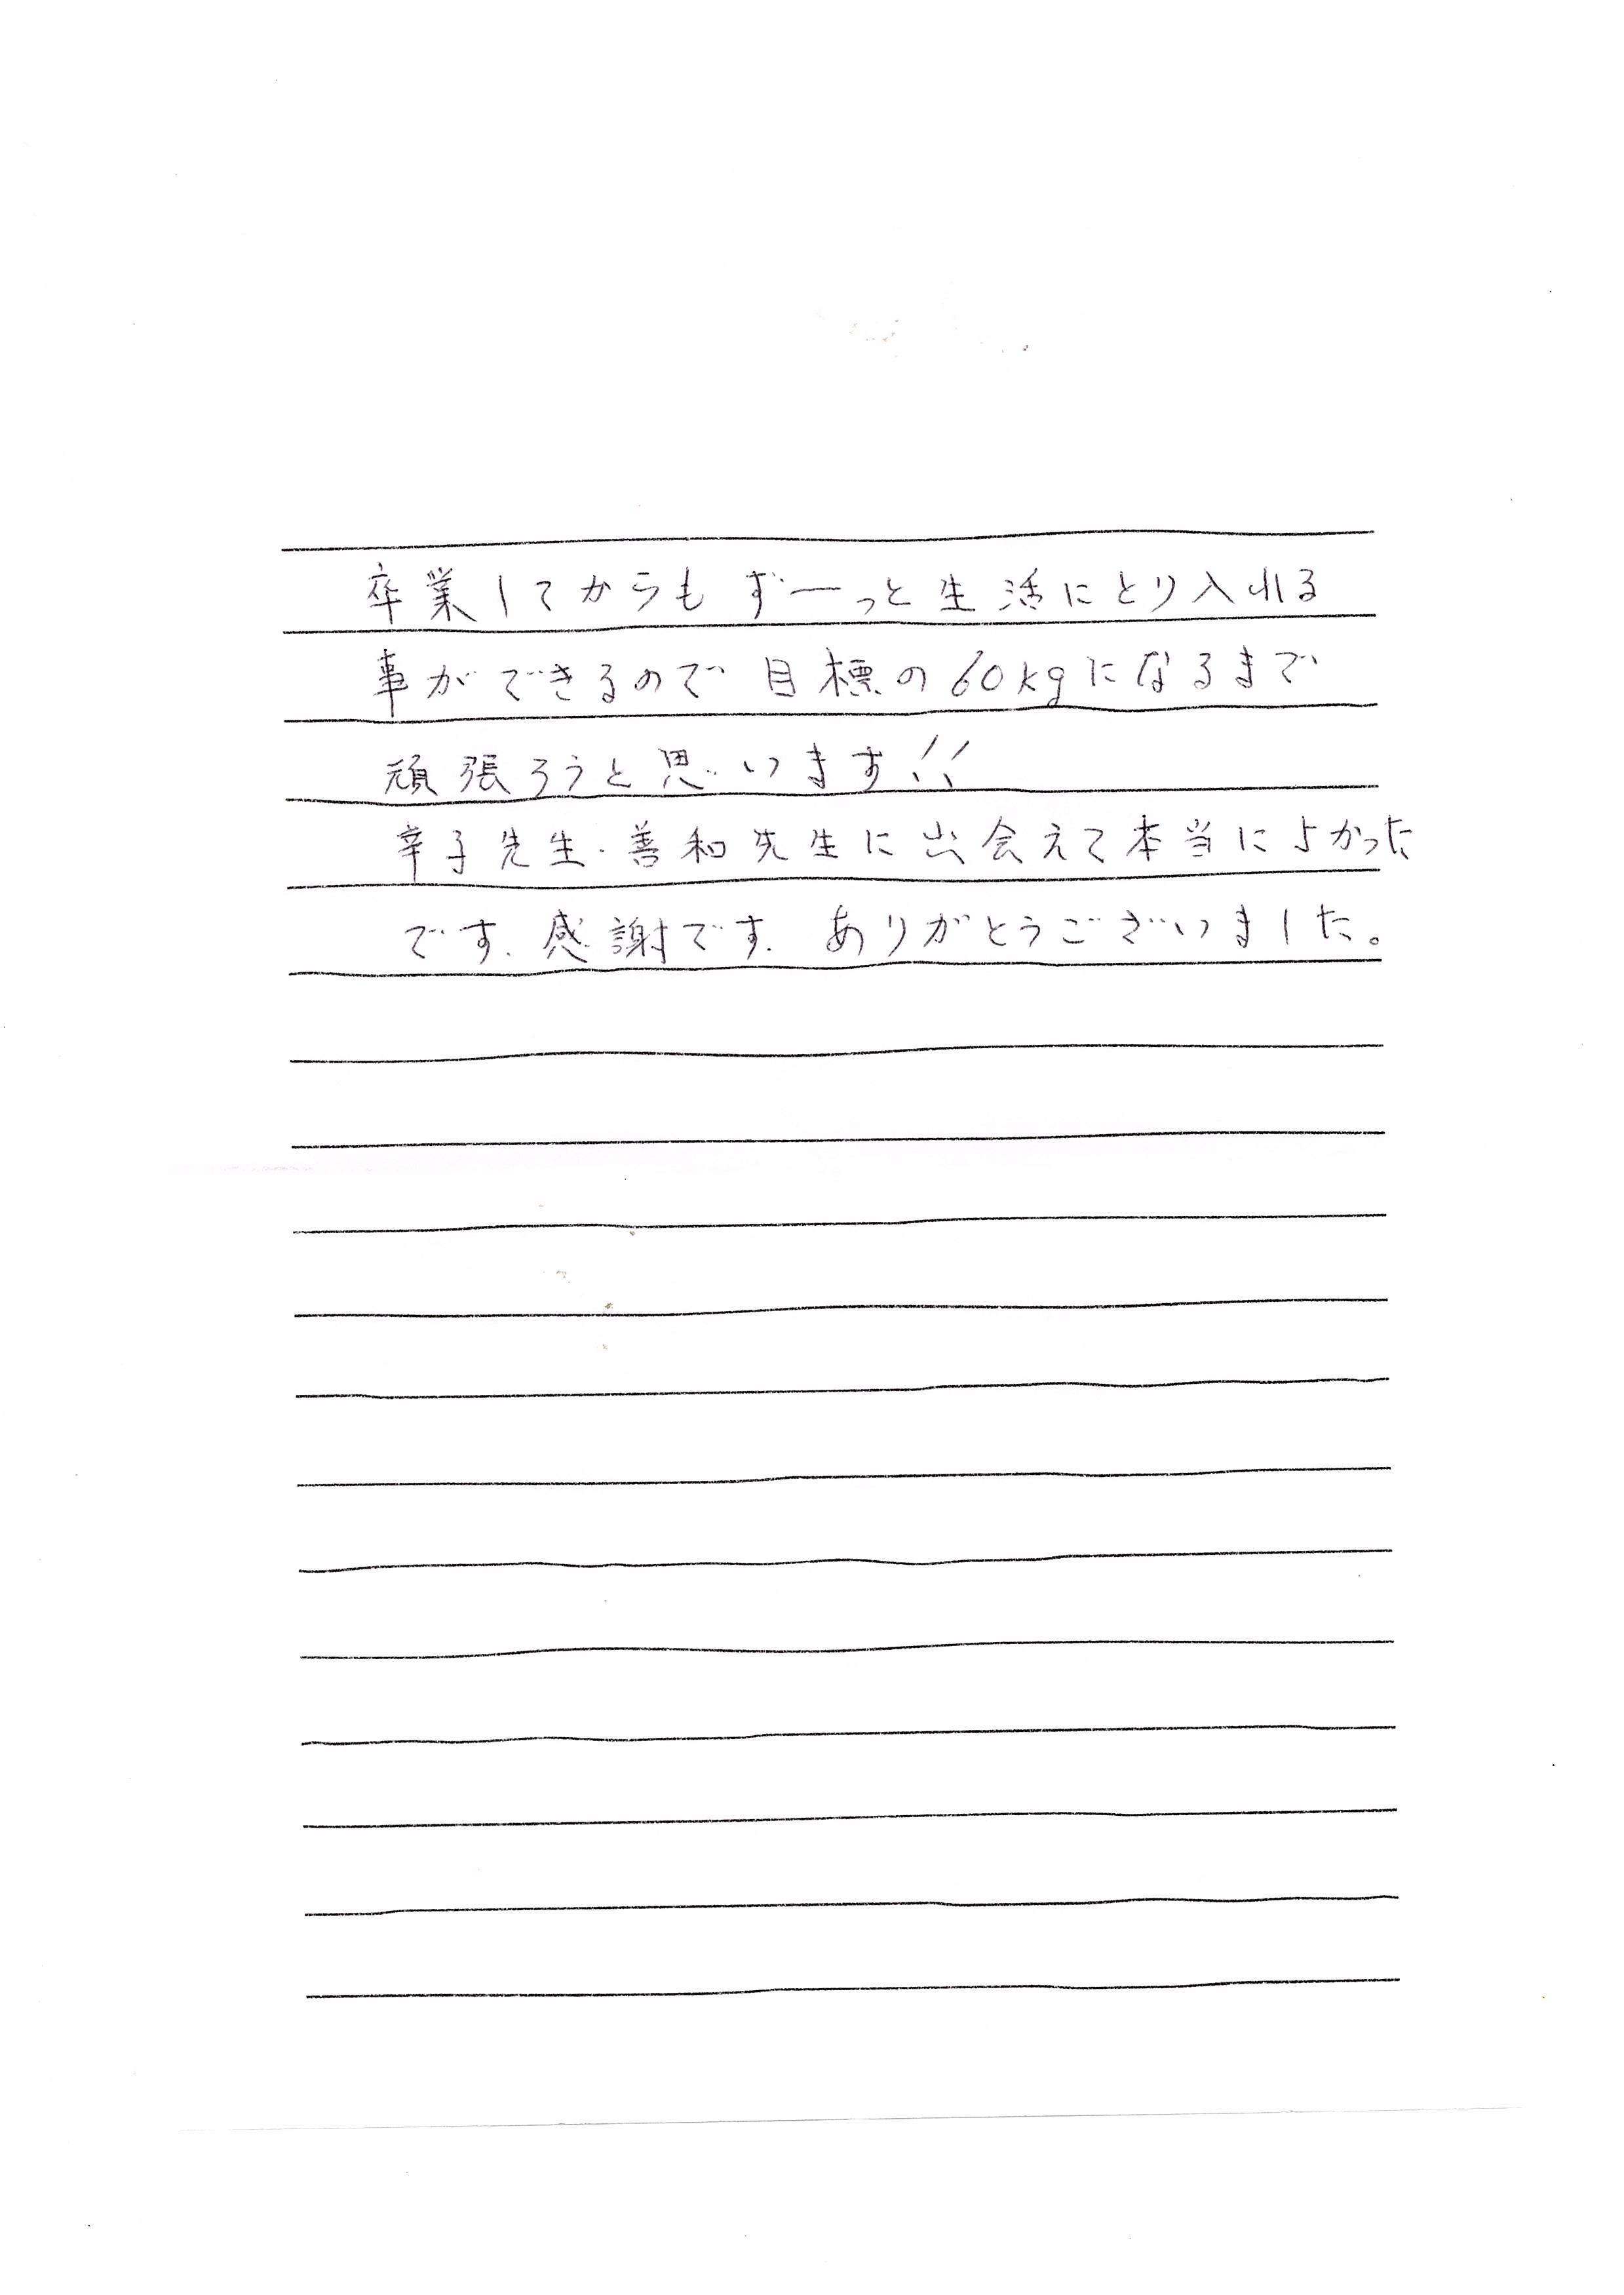 卒業してからもずーっと生活にとり入れる
事ができるので目標の60kgになるまで
頑張ろうと思います!!
幸子先生・善和先生に出会えて本当によかった
です、感謝です。ありがとうございました。